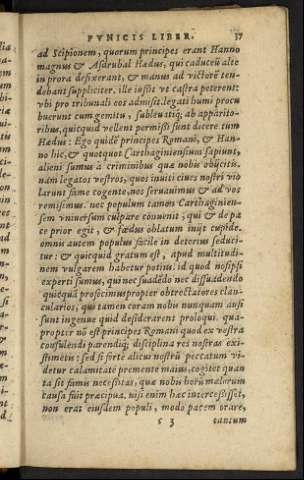 PVNICIS LIBER. 37
ad Scipionem, quorum principes erant Hanno
magnus & Asdrubal Hædus, qui caduceũ alte
in prora defixerant, & manus ad victorẽ ten-
debant suppliciter. ille iussit vt castra peterent:
vbi pro tribunali eos admisit. legati humi procu
buerunt cum gemitu, subleuatiq; ab apparito-
ribus, quicquid vellent permissi sunt dicere tum
Hædus: Ego quidẽ principes Romani, & Han-
no hic, & quotquot Carthaginiensium sapiunt,
alieni sumus à criminibus quæ nobis obijcitis.
nam legatos vestros, quos inuiti ciues nostri vio
larunt fame cogente, nos seruauimus & ad vos
remisimus. nec populum tamen Carthaginien-
sem vniuersum culpare conuenit, qui & de pa
ce prior egit, & fœdus oblatum iuijt cupide.
omnis autem populus facile in deterius seduci-
tur: & quicquid gratum est, apud multitudi-
nem vulgarem habetur potius. id quod nosipsi
experti sumus, qui nec suadẽdo nec dissuadendo
quicquã profecimus propter obtrectatores clan-
cularios, qui tamen coram nobis nunquam ausi
sunt ingenue quid desiderarent proloqui. qua-
propter nõ est principes Romani quod ex vestra
consulendi parendiq; disciplina res nostras exi-
stimetis: sed si fortè alicui nostrũ peccatum vi-
detur calamitate premente maius, cogitet quan
ta sit famis necessitas, quæ nobis horũ malorum
causa fuit præcipua. nisi enim hæc intercessisset,
non erat eiusdem populi, modo pacem orare,
s 3 tantum